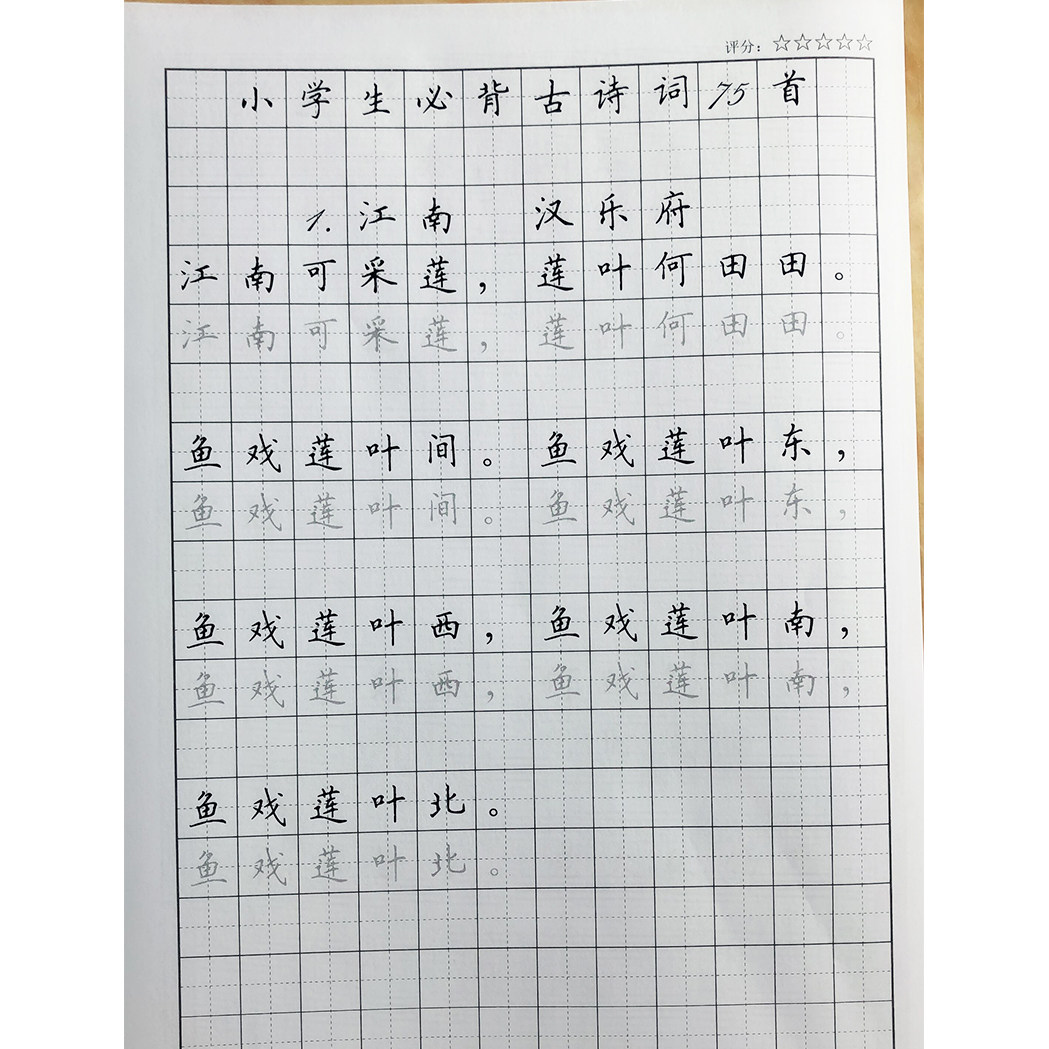 评分：☆☆☆☆☆
小学生必背古诗词75首
1.江南 汉乐府
江南可采莲，莲叶何田田。
江南可采莲，莲叶何田田。
鱼戏莲叶间。鱼戏莲叶东，
鱼戏莲叶间。鱼戏莲叶东，
鱼戏莲叶西，鱼戏莲叶南，
鱼戏莲叶西，鱼戏莲叶南，
鱼戏莲叶北。
鱼戏莲叶北。